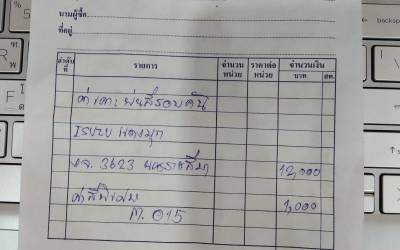 นามผู้ซื้อ
ที่อยู่
ลำดับที่ รายการ จำนวนหน่วย ราคาต่อหน่วย จำนวนเงิน บาท สต.
ค่าเคาะ พ่นสีรอบคัน
ISUZU
ผจ. 3623 นครราชสีมา 12,000
ค่าสี 1,000
M. 015
backsp